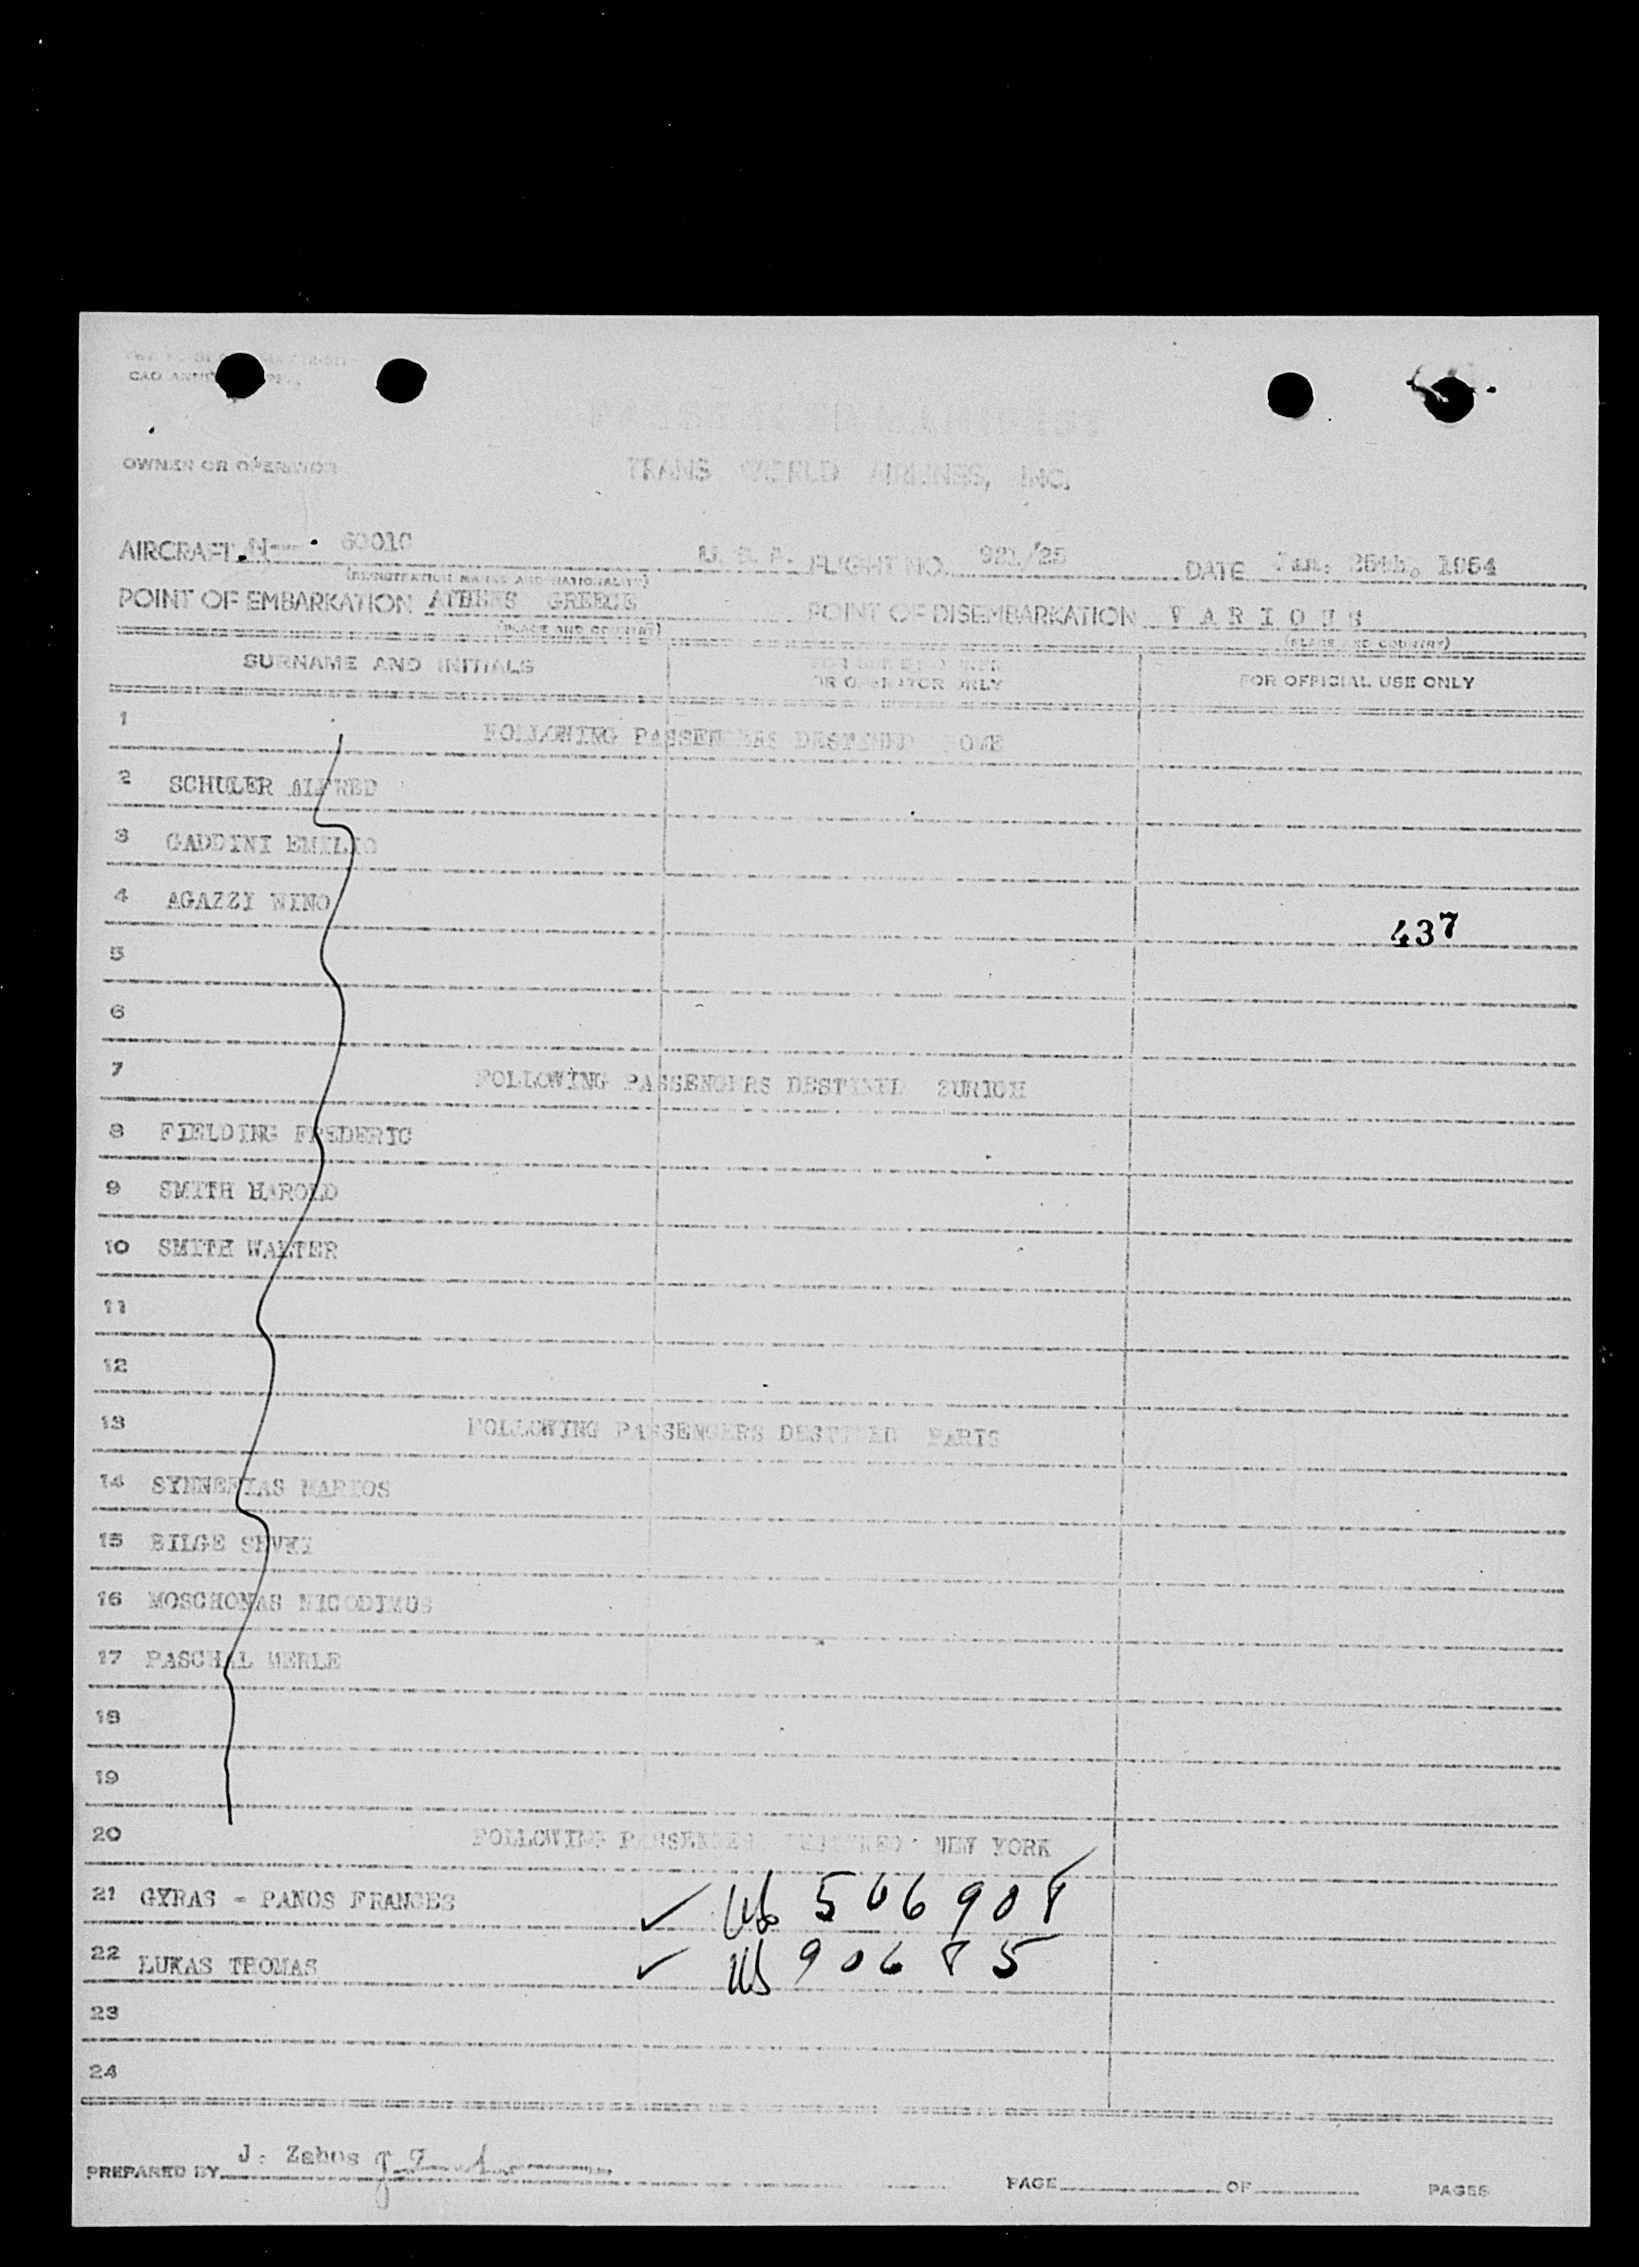 OWNER OR OPERATOR
TRANS WORLD AIRLINES, INC.
AIRCRAFT N- 6001C U. S. A. FLIGHT NO. 921/25 DATE Jan. 25th, 1954
(REGISTRATION MARKS AND NATIONALITY)
POINT OF EMBARKATION ATHENS GREECE POINT OF DISEMBARKATION V A R I O U S
(PLACE AND COUNTRY) (PLACE AND COUNTRY)
SURNAME AND INITIALS FOR USE BY OWNER OR OPERATOR ONLY FOR OFFICIAL USE ONLY
1 FOLLOWING PASSENGERS DESTINED ROME
2 SCHULER ALFRED
3 GADDINI EMILIO
4 AGAZZI NINO
437
5
6
7 FOLLOWING PASSENGERS DESTINED ZURICH
8 FIELDING FREDERIC
9 SMITH HAROLD
10 SMITH WALTER
11
12
13 FOLLOWING PASSENGERS DESTINED PARIS
14 SYNNEFIAS MARIOS
15 BILGE
16 MOSCHONAS NICODIMOS
17 PASCHAL MERLE
18
19
20 FOLLOWING PASSENGERS DESTINED NEW YORK
21 GYRAS - PANOS FRANCES ✓ US 506908
22 LUKAS THOMAS ✓ US 90685
23
24
PREPARED BY J. Zabos
PAGE OF PAGES